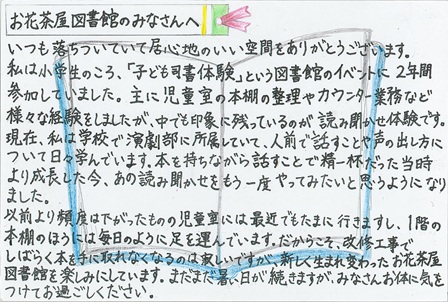 お花茶屋図書館のみなさんへ
いつも落ちついていて居心地のいい空間をありがとうございます。
私は小学生のころ、「子ども司書体験」という図書館のイベントに2年間
参加していました。主に児童室の本棚の整理やカウンター業務など
様々な経験をしましたが、中でも印象に残っているのが読み聞かせ体験です。
現在、私は学校で演劇部に所属していて、人前で話すことや声の出し方に
ついて日々学んでいます。本を持ちながら話すことで精一杯だった当時
より成長した今、あの読み聞かせをもう一度やってみたいと思うようになり
ました。
以前より頻度は下がったものの児童室には最近でもたまに行きますし、1階の
本棚のほうには毎日のように足を運んでいます。だからこそ、改修工事で
しばらく本を手に取れなくなるのは寂しいですが、新しく生まれ変わったお花茶屋
図書館を楽しみにしています。まだまだ暑い日が続きますが、みなさんお体に気を
つけてお過ごしください。